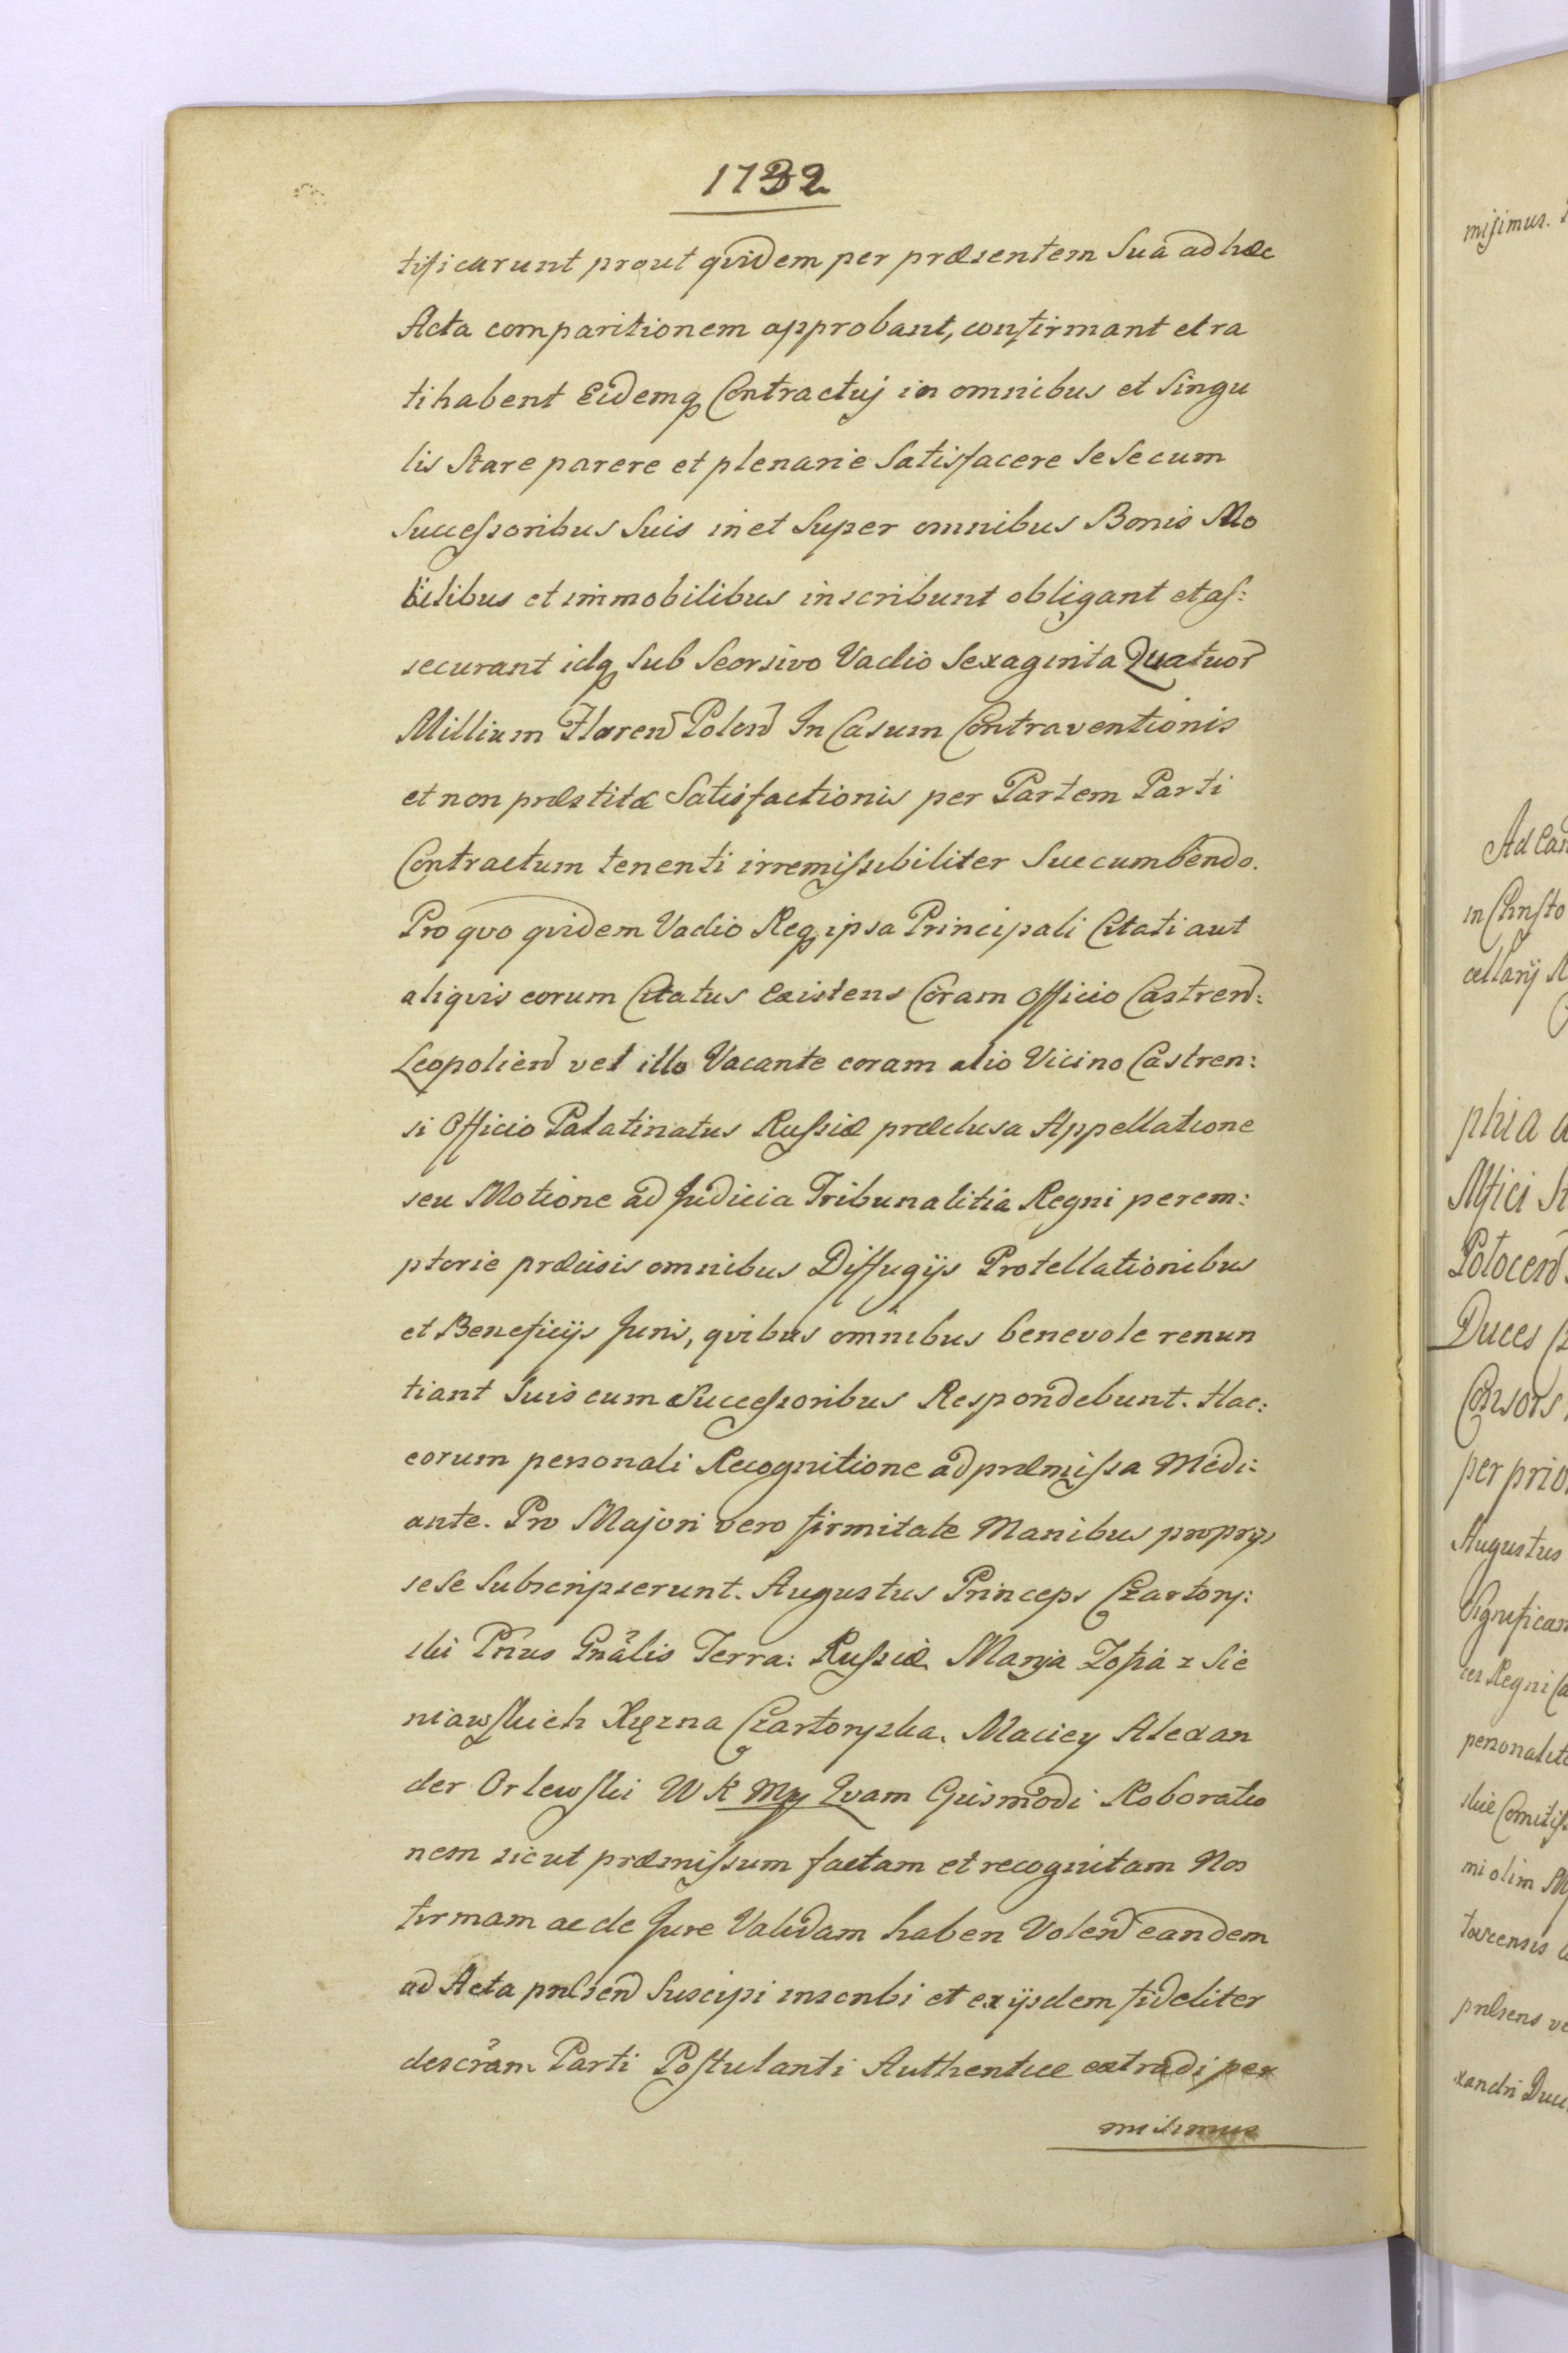 1732
tificarunt prout qvidem per præsentem Suâ ad hæc
Acta comparitionem approbant, confirmant et ra
tihabent Eidemq Contractuj in omnibus et Singu
lis Stare parere et plenarie Satisfacere Sese cum
Succeſsoribus Suis in et Super omnibus Bonis Mo
bilibus et immobilibus inscribunt obligant et aſ:
securant idq Sub Seorsivo Vadio Sexaginta Quatuor
Millium Floren Polon In Casum Contraventionis
et non præstitæ Satisfactionis per Partem Parti
Contractum tenenti irremiſsibiliter Succumbendo.
Pro qvo qvidem Vadio Req ipsa Principali Citati aut
aliqvis eorum Citatus Existens Coram Officio Castren:
Leopolien vel illo Vacante coram alio Vicino Castren:
si Officio Palatinatus Ruſsiæ præclusa Appellatione
seu Motione ad Judicia Tribunalitia Regni perem:
ptorie præcisis omnibus Diffugijs Protellationibus
et Beneficijs Juris, qvibus omnibus benevole renun
tiant Suis cum Succeſsoribus Respondebunt. Hac:
eorum personali Recognitione ad præmiſsa Medi:
ante. Pro Majori vero firmitate Manibus proprijs
sese Subscripserunt. Augustus Princeps Czartory:
ski Pnus Gnâlis Terra: Ruſsiæ Marya Zofia z Sie
niawſkich Xięzna Czartoryska. Maciey Alexan
der Orlewſki W K mp Qvam Ejusmodi Roboratio
nem sicut præmiſsum factam et recognitam Nos
firmam ac de Jure Validam haben Volen eandem
ad Acta pnlsen Suscipi inscribi et ex ijsdem fideliter
descram Parti Poſtulanti Authentice extradi per
misimus
miſimus.
Ad
in Chriſto
cellarij
phia
Mfici
Potocen
Duces
Consors
per
Augustus
Significan
Regni
personalit
skie Comitiſs
mi olim
tavcensis
pnlsens
xandri